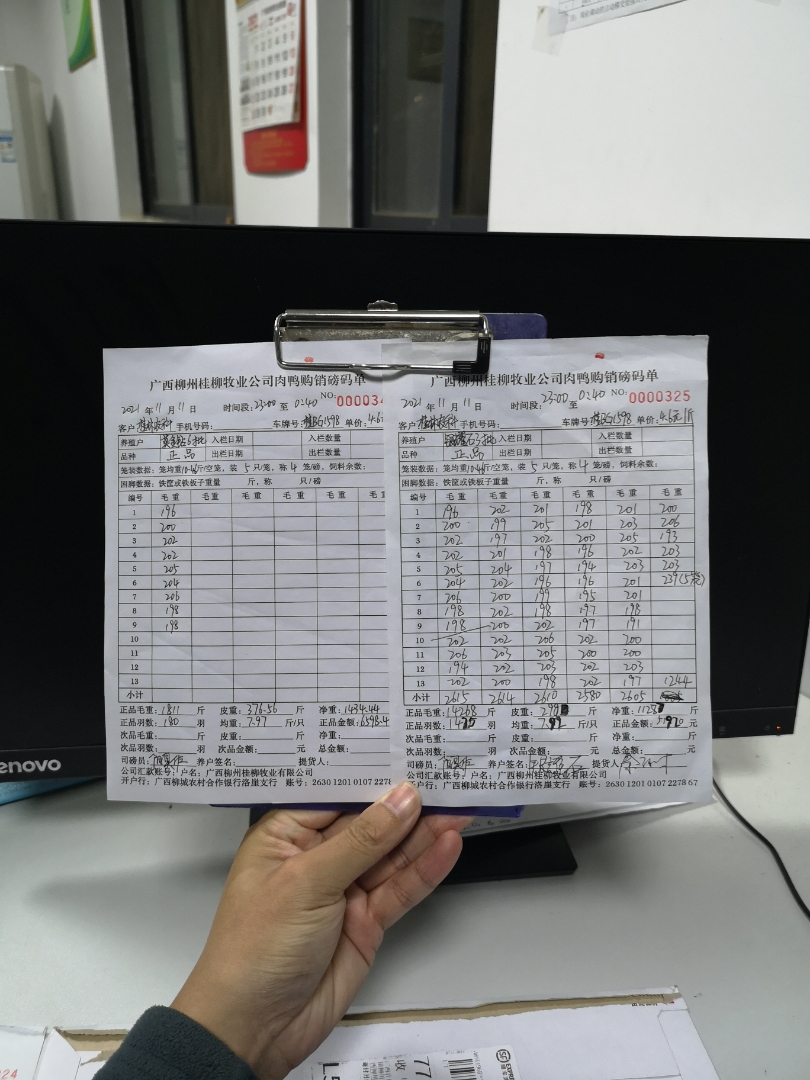 广西柳州桂柳牧业公司肉鸭购销磅码单
2021 年 11 月 11 日 时间段: 23:00 至 0:40 NO: 000034
客户: 手机号码: 车牌号: 单价: 4.6
养殖户 入栏日期 入栏数量
品种 正品 出栏日期 出栏数量
笼装数据: 笼均重 斤/空笼, 装 5 只/笼, 称 4 笼/磅, 饲料余数:
困脚数据: 铁筐或铁板子重量 斤, 称 只/磅
编号 毛重 毛重 毛重 毛重 毛重 毛
1 196
2 200
3 202
4 202
5 205
6 204
7 206
8 198
9 198
10
11
12
13
小计
正品毛重: 1811 斤 皮重: 376.56 斤 净重: 1434.44
正品羽数: 180 羽 均重: 7.97 斤/只 正品金额: 6598.4
次品毛重: 斤 皮重: 斤 净重:
次品羽数: 羽 次品金额: 元 总金额:
司磅员: 养户签名: 提货人:
公司汇款账号: 户名: 广西柳州桂柳牧业有限公司
开户行: 广西柳城农村合作银行洛崖支行 账号: 2630 1201 0107 2278
广西柳州桂柳牧业公司肉鸭购销磅码单
2021 年 11 月 11 日 时间段: 23:00 至 0:40 NO: 0000325
客户: 手机号码: 车牌号: 单价: 4.6元/斤
养殖户 入栏日期 入栏数量
品种 正品 出栏日期 出栏数量
笼装数据: 笼均重 斤/空笼, 装 5 只/笼, 称 4 笼/磅, 饲料余数:
困脚数据: 铁筐或铁板子重量 斤, 称 只/磅
编号 毛重 毛重 毛重 毛重 毛重 毛重
1 196 202 201 198 201 200
2 200 199 205 201 203 206
3 202 197 202 200 205 193
4 202 201 198 196 202 203
5 205 204 197 194 203 203
6 204 202 196 196 201 239(5笼)
7 206 200 199 195 201
8 198 202 198 197 198
9 198 200 202 197 191
10 202 202 206 202 200
11 206 203 205 200 200
12 194 202 203 202 203
13 202 200 198 202 197 1244
小计 2615 2614 2610 2580 2605
正品毛重: 14268 斤 皮重: 斤 净重: 斤
正品羽数: 羽 均重: 斤/只 正品金额: 元
次品毛重: 斤 皮重: 斤 净重: 斤
次品羽数: 羽 次品金额: 元 总金额: 元
司磅员: 养户签名: 提货人:
公司汇款账号: 户名: 广西柳州桂柳牧业有限公司
开户行: 广西柳城农村合作银行洛崖支行 账号: 2630 1201 0107 2278 67
enovo